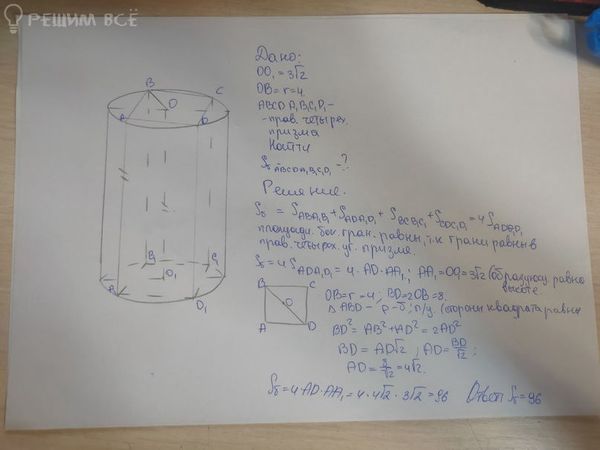 РЕШИМ ВСЁ
Дано:
OO₁ = 3√2
OB = r = 4
ABCD A₁B₁C₁D₁ –
- прав. четырех.
призма
Найти
Sδ ABCDA₁B₁C₁D₁ - ?
Решение.
Sδ = S ABA₁B₁ + S ADA₁D₁ + S BCB₁C₁ + S CDC₁D₁ = 4 S ADA₁D₁
площади. бок. гран. равны, т.к грани равны в
прав. четырех. уг. призма.
Sδ = 4 S ADA₁D₁ = 4 · AD · AA₁; AA₁ = OO₁ = 3√2 (образующ равна
высоте
OB = r = 4; BD = 2OB = 8;
Δ ABD – р-б; п/у. (стороны квадрата равны
BD² = AB² + AD² = 2AD²
BD = AD√2; AD = BD/√2;
AD = 8/√2 = 4√2.
Sδ = 4 · AD · AA₁ = 4 · 4√2 · 3√2 = 96
Ответ Sδ = 96
B
O
C
A
D
B₁
C₁
O₁
A₁
D₁
B
C
O
A
D